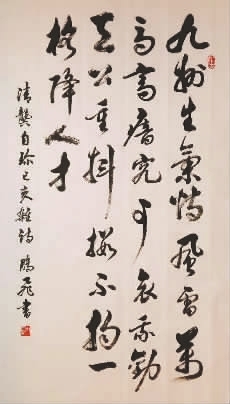 九州生氣恃風雷萬
馬齊瘖究可哀我勸
天公重抖擻不拘一
格降人才
清龔自珍己亥雜詩 鵬飛書